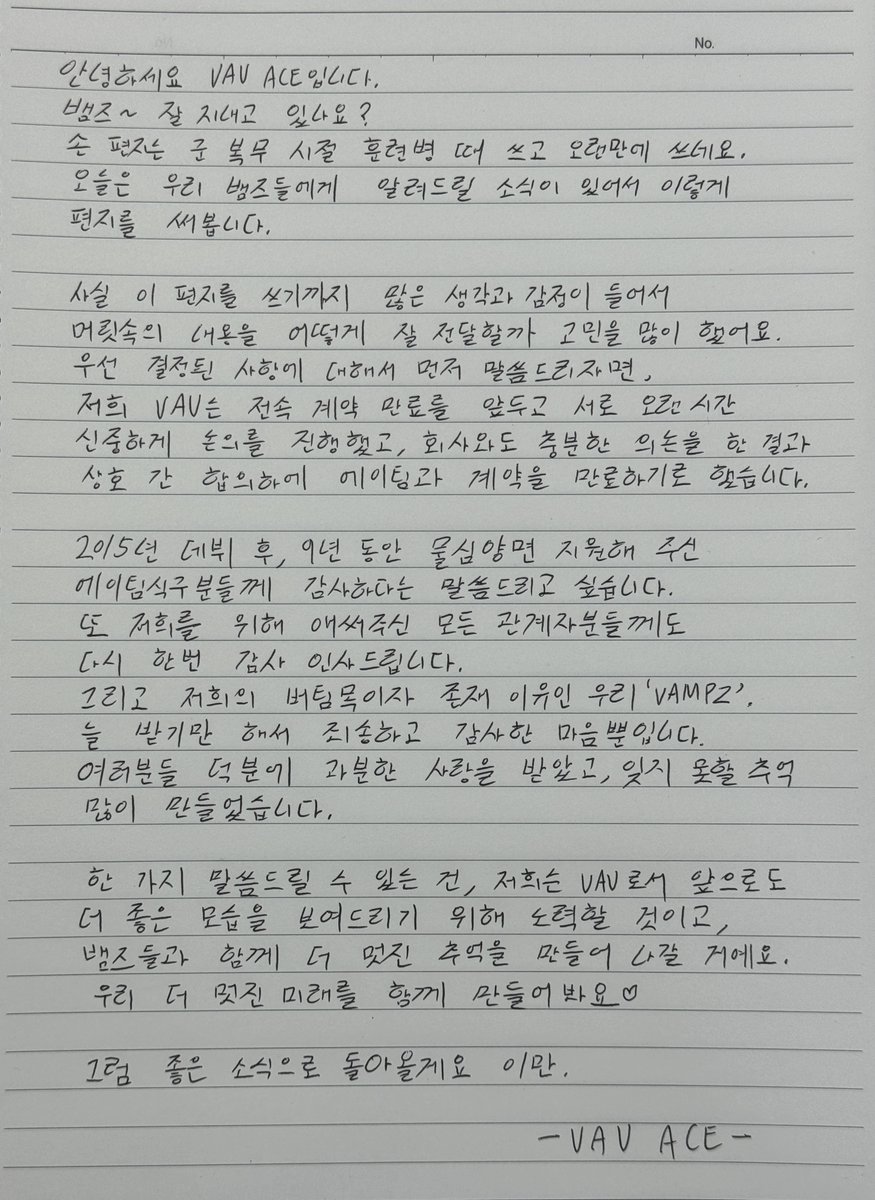 No.
안녕하세요 VAV ACE입니다.
뱀즈~ 잘 지내고 있나요?
손 편지는 군 복무 시절 훈련병 때 쓰고 오랜만에 쓰네요.
오늘은 우리 뱀즈들에게 알려드릴 소식이 있어서 이렇게
편지를 써봅니다.
사실 이 편지를 쓰기까지 많은 생각과 감정이 들어서
머릿속의 내용을 어떻게 잘 전달할까 고민을 많이 했어요.
우선 결정된 사항에 대해서 먼저 말씀드리자면,
저희 VAV는 전속 계약 만료를 앞두고 서로 오랜 시간
신중하게 논의를 진행했고, 회사와도 충분한 의논을 한 결과
상호 간 합의하에 에이팀과 계약을 만료하기로 했습니다.
2015년 데뷔 후, 9년 동안 물심양면 지원해 주신
에이팀식구분들께 감사하다는 말씀드리고 싶습니다.
또 저희를 위해 애써주신 모든 관계자분들께도
다시 한번 감사 인사드립니다.
그리고 저희의 버팀목이자 존재 이유인 우리 'VAMPZ'.
늘 받기만 해서 죄송하고 감사한 마음뿐입니다.
여러분들 덕분에 과분한 사랑을 받았고, 잊지 못할 추억
많이 만들었습니다.
한 가지 말씀드릴 수 있는 건, 저희는 VAV로서 앞으로도
더 좋은 모습을 보여드리기 위해 노력할 것이고,
뱀즈들과 함께 더 멋진 추억을 만들어 나갈 거예요.
우리 더 멋진 미래를 함께 만들어봐요♡
그럼 좋은 소식으로 돌아올게요 이만.
-VAV ACE-